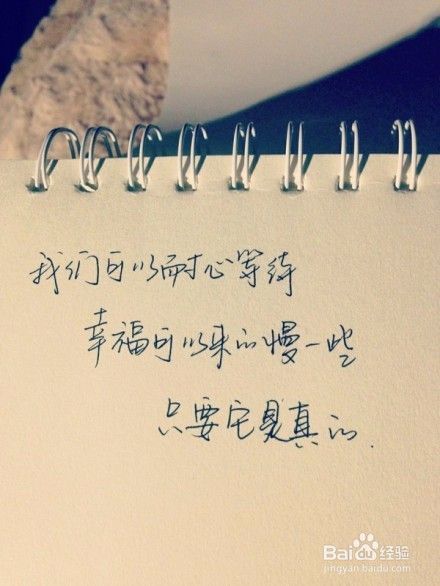 我们可以耐心等待
幸福可以来的慢一些
只要它是真的.
Baidu经验
jingyan.baidu.com